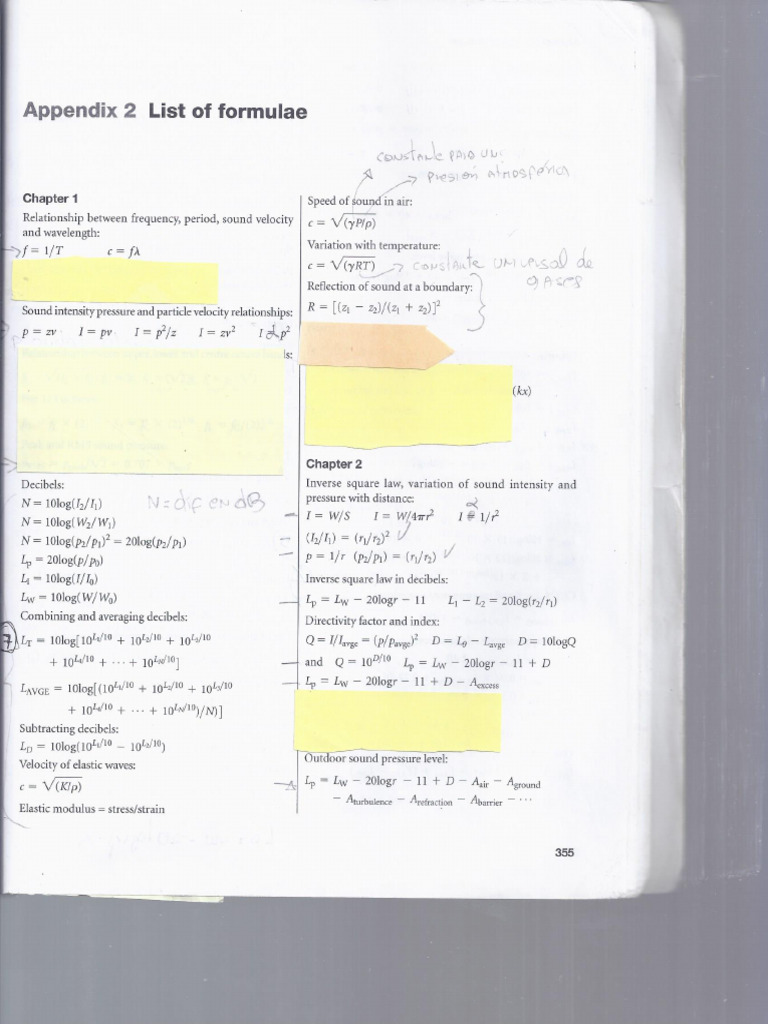 Appendix 2 List of formulae
constante para un
presión atmosférica
Chapter 1
Relationship between frequency, period, sound velocity
and wavelength:
f = 1/T c = fλ
Sound intensity pressure and particle velocity relationships:
p = zv I = pv I = p²/z I = zv² I α p²
ls:
Decibels:
N = 10log(I₂/I₁) N = dif en dB
N = 10log(W₂/W₁)
N = 10log(p₂/p₁)² = 20log(p₂/p₁)
Lp = 20log(p/p₀)
LI = 10log(I/I₀)
LW = 10log(W/W₀)
Combining and averaging decibels:
7 LT = 10log[10^L₁/10 + 10^L₂/10 + 10^L₃/10
+ 10^L₄/10 + ⋯ + 10^LN/10]
LAVGE = 10log[(10^L₁/10 + 10^L₂/10 + 10^L₃/10
+ 10^L₄/10 + ⋯ + 10^LN/10)/N)]
Subtracting decibels:
LD = 10log(10^L₁/10 − 10^L₂/10)
Velocity of elastic waves:
c = √(K/ρ)
Elastic modulus = stress/strain
Speed of sound in air:
c = √(γP/ρ)
Variation with temperature:
c = √(γRT) constante universal de
gases
Reflection of sound at a boundary:
R = [(z₁ − z₂)/(z₁ + z₂)]²
(kx)
Chapter 2
Inverse square law, variation of sound intensity and
pressure with distance:
α
I = W/S I = W/4πr² I 1/r²
(I₂/I₁) = (r₁/r₂)²
p = 1/r (p₂/p₁) = (r₁/r₂)
Inverse square law in decibels:
Lp = LW − 20logr − 11 L₁ − L₂ = 20log(r₂/r₁)
Directivity factor and index:
Q = I/Iavge = (p/pavge)² D = Lθ − Lavge D = 10logQ
and Q = 10^D/10 Lp = LW − 20logr − 11 + D
Lp = LW − 20logr − 11 + D − Aexcess
Outdoor sound pressure level:
Lp = LW − 20logr − 11 + D − Aair − Aground
− Aturbulence − Arefraction − Abarrier − ⋯
355